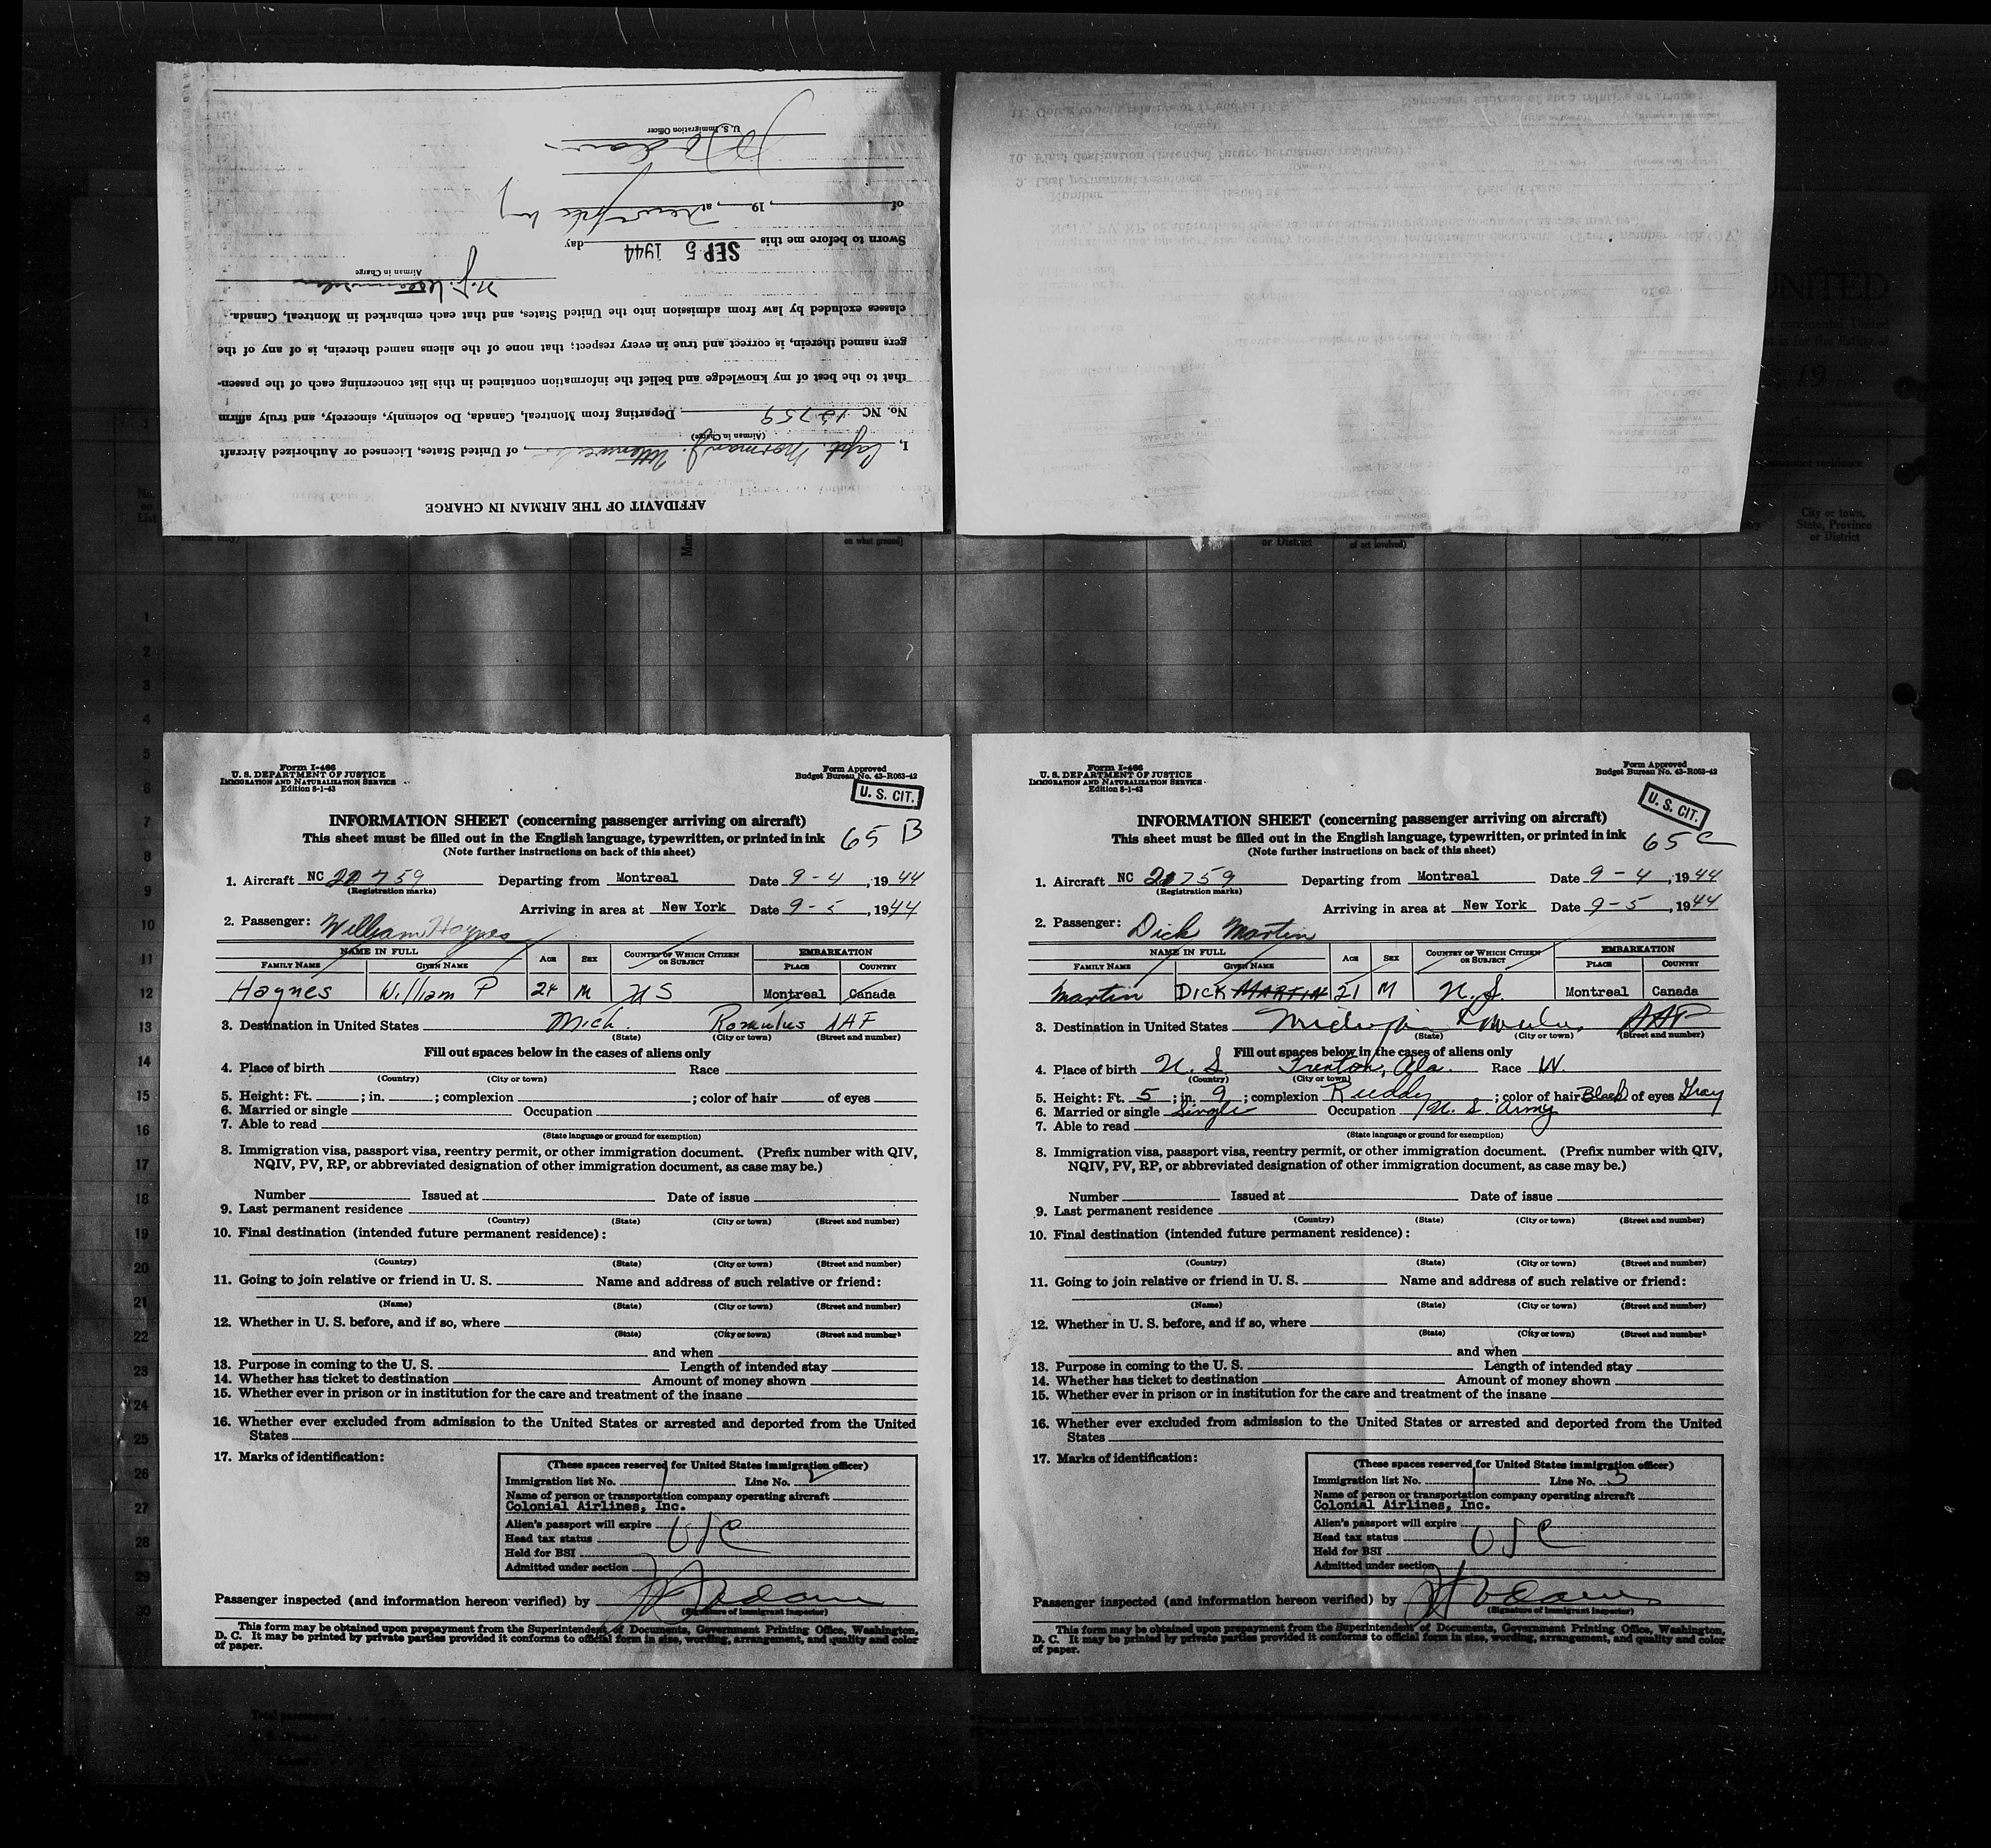 AFFIDAVIT OF THE AIRMAN IN CHARGE
I, Capt. Norman J. , of United States, Licensed or Authorized Aircraft
(Airman in Charge)
No. NC 759 Departing from Montreal, Canada, Do solemnly, sincerely, and truly affirm
that to the best of my knowledge and belief the information contained in this list concerning each of the passen-
gers named therein, is correct and true in every respect; that none of the aliens named therein, is of any of the
classes excluded by law from admission into the United States, and that each embarked in Montreal, Canada.
N. J.
Airman in Charge
Sworn to before me this SEP 5 1944 day
of , 19 , at New York NY
U. S. Immigration Officer
UNITED
Form I-466
U. S. DEPARTMENT OF JUSTICE
IMMIGRATION AND NATURALIZATION SERVICE
Edition 8-1-43
Form Approved
Budget Bureau No. 43-R063-42
U. S. CIT.
INFORMATION SHEET (concerning passenger arriving on aircraft)
This sheet must be filled out in the English language, typewritten, or printed in ink 65 B
(Note further instructions on back of this sheet)
1. Aircraft NC 20759 Departing from Montreal Date 9-4, 1944
(Registration marks)
Arriving in area at New York Date 9-5, 1944
2. Passenger: William Haynes
NAME IN FULL AGE SEX COUNTRY OF WHICH CITIZEN OR SUBJECT EMBARKATION
FAMILY NAME GIVEN NAME PLACE COUNTRY
Haynes William P 24 M US Montreal Canada
3. Destination in United States Mich. Romulus AAF
(State) (City or town) (Street and number)
Fill out spaces below in the cases of aliens only
4. Place of birth Race
(Country) (City or town)
5. Height: Ft. ; in. ; complexion ; color of hair of eyes
6. Married or single Occupation
7. Able to read
(State language or ground for exemption)
8. Immigration visa, passport visa, reentry permit, or other immigration document. (Prefix number with QIV,
NQIV, PV, RP, or abbreviated designation of other immigration document, as case may be.)
Number Issued at Date of issue
9. Last permanent residence
(Country) (State) (City or town) (Street and number)
10. Final destination (intended future permanent residence):
(Country) (State) (City or town) (Street and number)
11. Going to join relative or friend in U. S. Name and address of such relative or friend:
(Name) (State) (City or town) (Street and number)
12. Whether in U. S. before, and if so, where
(State) (City or town) (Street and number)
and when
13. Purpose in coming to the U. S. Length of intended stay
14. Whether has ticket to destination Amount of money shown
15. Whether ever in prison or in institution for the care and treatment of the insane
16. Whether ever excluded from admission to the United States or arrested and deported from the United
States
17. Marks of identification:
(These spaces reserved for United States immigration officer)
Immigration list No. 1 Line No. 2
Name of person or transportation company operating aircraft
Colonial Airlines, Inc.
Alien's passport will expire
Head tax status USC
Held for BSI
Admitted under section
Passenger inspected (and information hereon verified) by
(Signature of immigrant inspector)
This form may be obtained upon prepayment from the Superintendent of Documents, Government Printing Office, Washington,
D. C. It may be printed by private parties provided it conforms to official form in size, wording, arrangement, and quality and color
of paper.
Form I-466
U. S. DEPARTMENT OF JUSTICE
IMMIGRATION AND NATURALIZATION SERVICE
Edition 8-1-43
Form Approved
Budget Bureau No. 43-R063-42
U. S. CIT.
INFORMATION SHEET (concerning passenger arriving on aircraft)
This sheet must be filled out in the English language, typewritten, or printed in ink 65 C
(Note further instructions on back of this sheet)
1. Aircraft NC 20759 Departing from Montreal Date 9-4, 1944
(Registration marks)
Arriving in area at New York Date 9-5, 1944
2. Passenger: Dick Martin
NAME IN FULL AGE SEX COUNTRY OF WHICH CITIZEN OR SUBJECT EMBARKATION
FAMILY NAME GIVEN NAME PLACE COUNTRY
Martin DICK MARTIN 21 M U.S. Montreal Canada
3. Destination in United States Michigan Romulus AAF
(State) (City or town) (Street and number)
Fill out spaces below in the cases of aliens only
4. Place of birth U. S. Trenton, Ala. Race W.
(Country) (City or town)
5. Height: Ft. 5 ; in. 9 ; complexion Ruddy ; color of hair Black of eyes Gray
6. Married or single Single Occupation U. S. Army
7. Able to read
(State language or ground for exemption)
8. Immigration visa, passport visa, reentry permit, or other immigration document. (Prefix number with QIV,
NQIV, PV, RP, or abbreviated designation of other immigration document, as case may be.)
Number Issued at Date of issue
9. Last permanent residence
(Country) (State) (City or town) (Street and number)
10. Final destination (intended future permanent residence):
(Country) (State) (City or town) (Street and number)
11. Going to join relative or friend in U. S. Name and address of such relative or friend:
(Name) (State) (City or town) (Street and number)
12. Whether in U. S. before, and if so, where
(State) (City or town) (Street and number)
and when
13. Purpose in coming to the U. S. Length of intended stay
14. Whether has ticket to destination Amount of money shown
15. Whether ever in prison or in institution for the care and treatment of the insane
16. Whether ever excluded from admission to the United States or arrested and deported from the United
States
17. Marks of identification:
(These spaces reserved for United States immigration officer)
Immigration list No. 1 Line No. 3
Name of person or transportation company operating aircraft
Colonial Airlines, Inc.
Alien's passport will expire
Head tax status USC
Held for BSI
Admitted under section
Passenger inspected (and information hereon verified) by
(Signature of immigrant inspector)
This form may be obtained upon prepayment from the Superintendent of Documents, Government Printing Office, Washington,
D. C. It may be printed by private parties provided it conforms to official form in size, wording, arrangement, and quality and color
of paper.